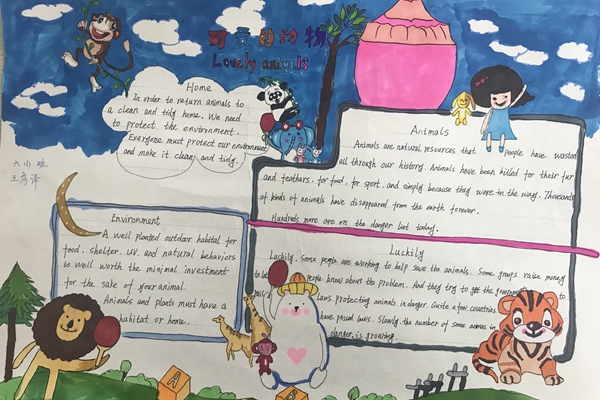 可爱的动物
Lovely animals
Home
In order to return animals to
a clean and tidy home. We need
to protect the environment.
Everyone must protect our environment
and make it clean and tidy.
六小班
Animals
Animals are natural resources that people have wasted
all through our history. Animals have been killed for their fur
and feathers, for food, for sport, and simply because they were in the way. Thousands
of kinds of animals have disappeared from the earth forever.
Hundreds more are on the danger list today.
Environment
A well planted outdoor habital for
food, shelter, UV, and natural behaviors
is well worth the minimal investment
for the sake of your animal.
Animals and plants must have a
habitat or home.
Luckily
Luckily, some people are working to help save the animals. Some groups raise money
to let people know about the problem. And they try to get the to
laws protecting animals in danger. Quite a few countries
have passed laws. Slowly, the number of some animals in
danger is growing.
A
B